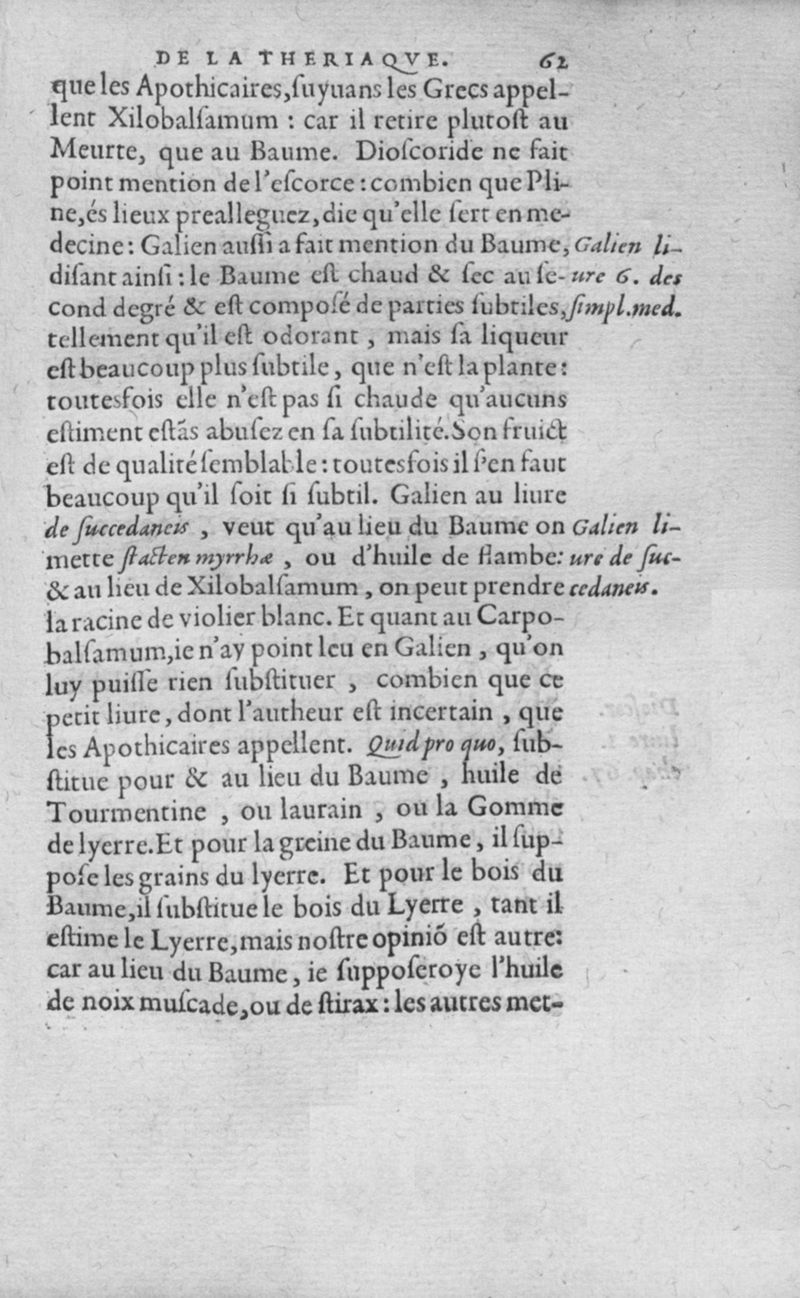 DE LA THERIAQVE. 62
que les Apothicaires, ſuyuans les Grecs appel-
lent Xilobalſamum : car il retire plutoſt au
Meurte, que au Baume. Dioſcoride ne fait
point mention de l'eſcorce : combien que Pli-
ne, és lieux prealleguez, die qu'elle ſert en me-
decine : Galien auſſi a fait mention du Baume,
diſant ainſi : le Baume eſt chaud & ſec au ſe-
cond degré & eſt compoſé de parties ſubtiles,
tellement qu'il eſt odorant , mais ſa liqueur
eſt beaucoup plus ſubtile, que n'eſt la plante:
toutesfois elle n'eſt pas ſi chaude qu'aucuns
eſtiment eſtãs abuſez en ſa ſubtilité. Son fruict
eſt de qualité ſemblable : toutesfois il ſ'en faut
beaucoup qu'il ſoit ſi ſubtil. Galien au liure
de ſuccedaneis , veut qu'au lieu du Baume on
mette ſtacten myrrhæ , ou d'huile de flambe:
& au lieu de Xilobalſamum , on peut prendre
la racine de violier blanc. Et quant au Carpo-
balſamum, ie n'ay point leu en Galien , qu'on
luy puiſſe rien ſubſtituer , combien que ce
petit liure, dont l'autheur eſt incertain , que
les Apothicaires appellent. Quid pro quo, ſub-
ſtitue pour & au lieu du Baume , huile de
Tourmentine , ou laurain , ou la Gomme
de lyerre. Et pour la greine du Baume, il ſup-
poſe les grains du lyerre. Et pour le bois du
Baume, il ſubſtitue le bois du Lyerre , tant il
eſtime le Lyerre, mais noſtre opiniõ eſt autre:
car au lieu du Baume, ie ſuppoſeroye l'huile
de noix muſcade, ou de ſtirax : les autres met-
Galien li-
ure 6. des
ſimpl. med.
Galien li-
ure de ſuc-
cedaneis.